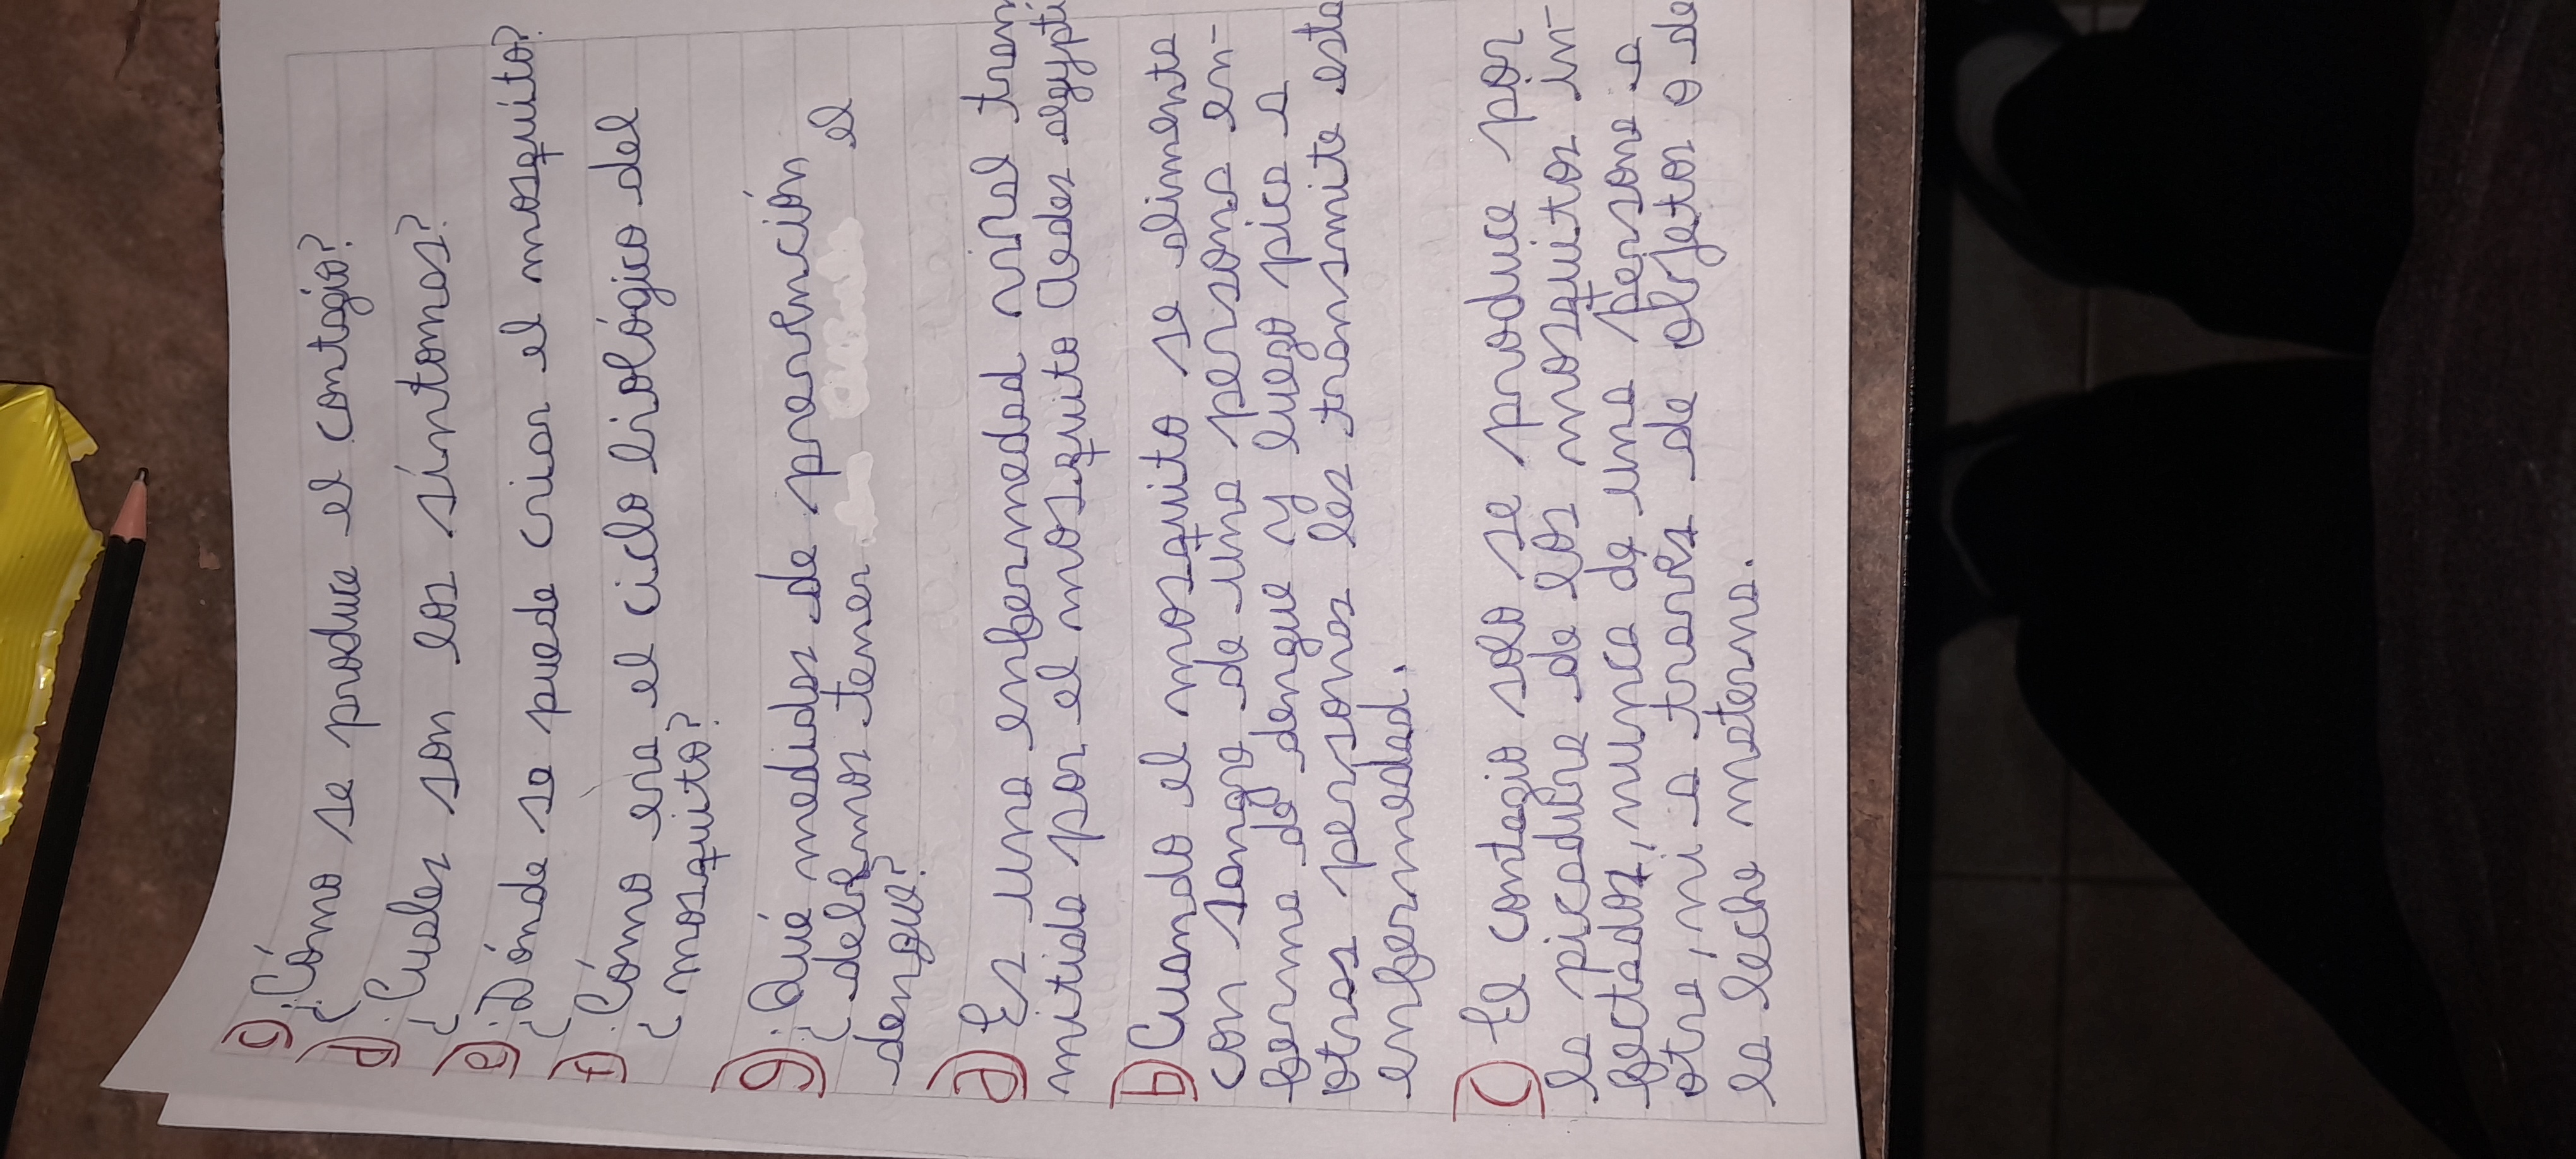 c) ¿Cómo se produce el contagio?
d) ¿Cuales son los síntomas?
e) ¿Dónde se puede criar el mosquito?
f) ¿Cómo era el ciclo biológico del
¿mosquito?
g) ¿Qué medidas de prevención
¿debemos tener el
dengue?
a) Es una enfermedad viral trans
mitida por el mosquito Aedes aegypti
b) Cuando el mosquito se alimenta
con sangre de una persona en-
ferma de dengue y luego pica a
otras personas les transmite esta
enfermedad.
c) El contagio solo se produce por
la picadura de los mosquitos in-
fectados, nunca de una persona a
otra, ni a través de objetos o de
la leche materna.